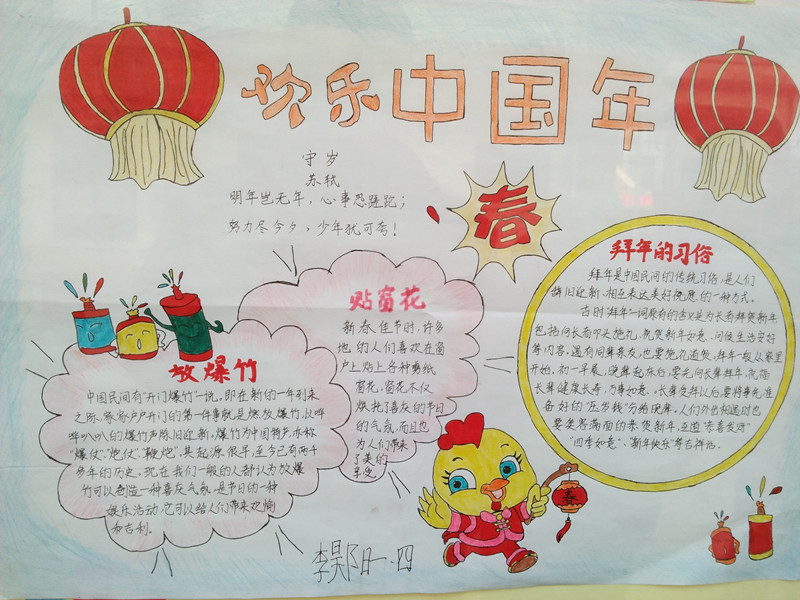 欢乐中国年
守岁
苏轼
明年岂无年，心事恐蹉跎；
努力尽今夕，少年犹可夸！
春
贴窗花
新春佳节时，许多
地的人们喜欢在窗
户上贴上各种剪纸
窗花，窗花不仅
烘托了喜庆的节日
的气氛，而且也
为人们带来
了美的
享受。
放爆竹
中国民间有"开门爆竹"一说。即在新的一年到来
之际，家家户户开门的第一件事就是燃放爆竹，以哔
哔叭叭的爆竹声除旧迎新。爆竹为中国特产，亦称
"爆仗"、"炮仗"、"鞭炮"。其起源很早，至今已有两千
多年的历史。现在我们一般的人都认为放爆
竹可以创造一种喜庆气氛，是节日的一种
娱乐活动，它可以给人们带来欢愉
和吉利。
拜年的习俗
拜年是中国民间的传统习俗，是人们
辞旧迎新、相互表达美好祝愿的一种方式。
古时"拜年"一词原有的含义是为长者拜贺新年
包括向长者叩头施礼、祝贺新年如意、问候生活安好
等内容。遇有同辈亲友，也要施礼道贺。拜年一般从家里
开始。初一早晨，晚辈起床后，要先向长辈拜年，祝福
长辈健康长寿，万事如意。长辈受拜以后，要将事先准
备好的"压岁钱"分给晚辈。人们外出相遇时也
要笑容满面的恭贺新年，互道"恭喜发财"
"四季如意"、"新年快乐"等吉祥话。
春
一.四